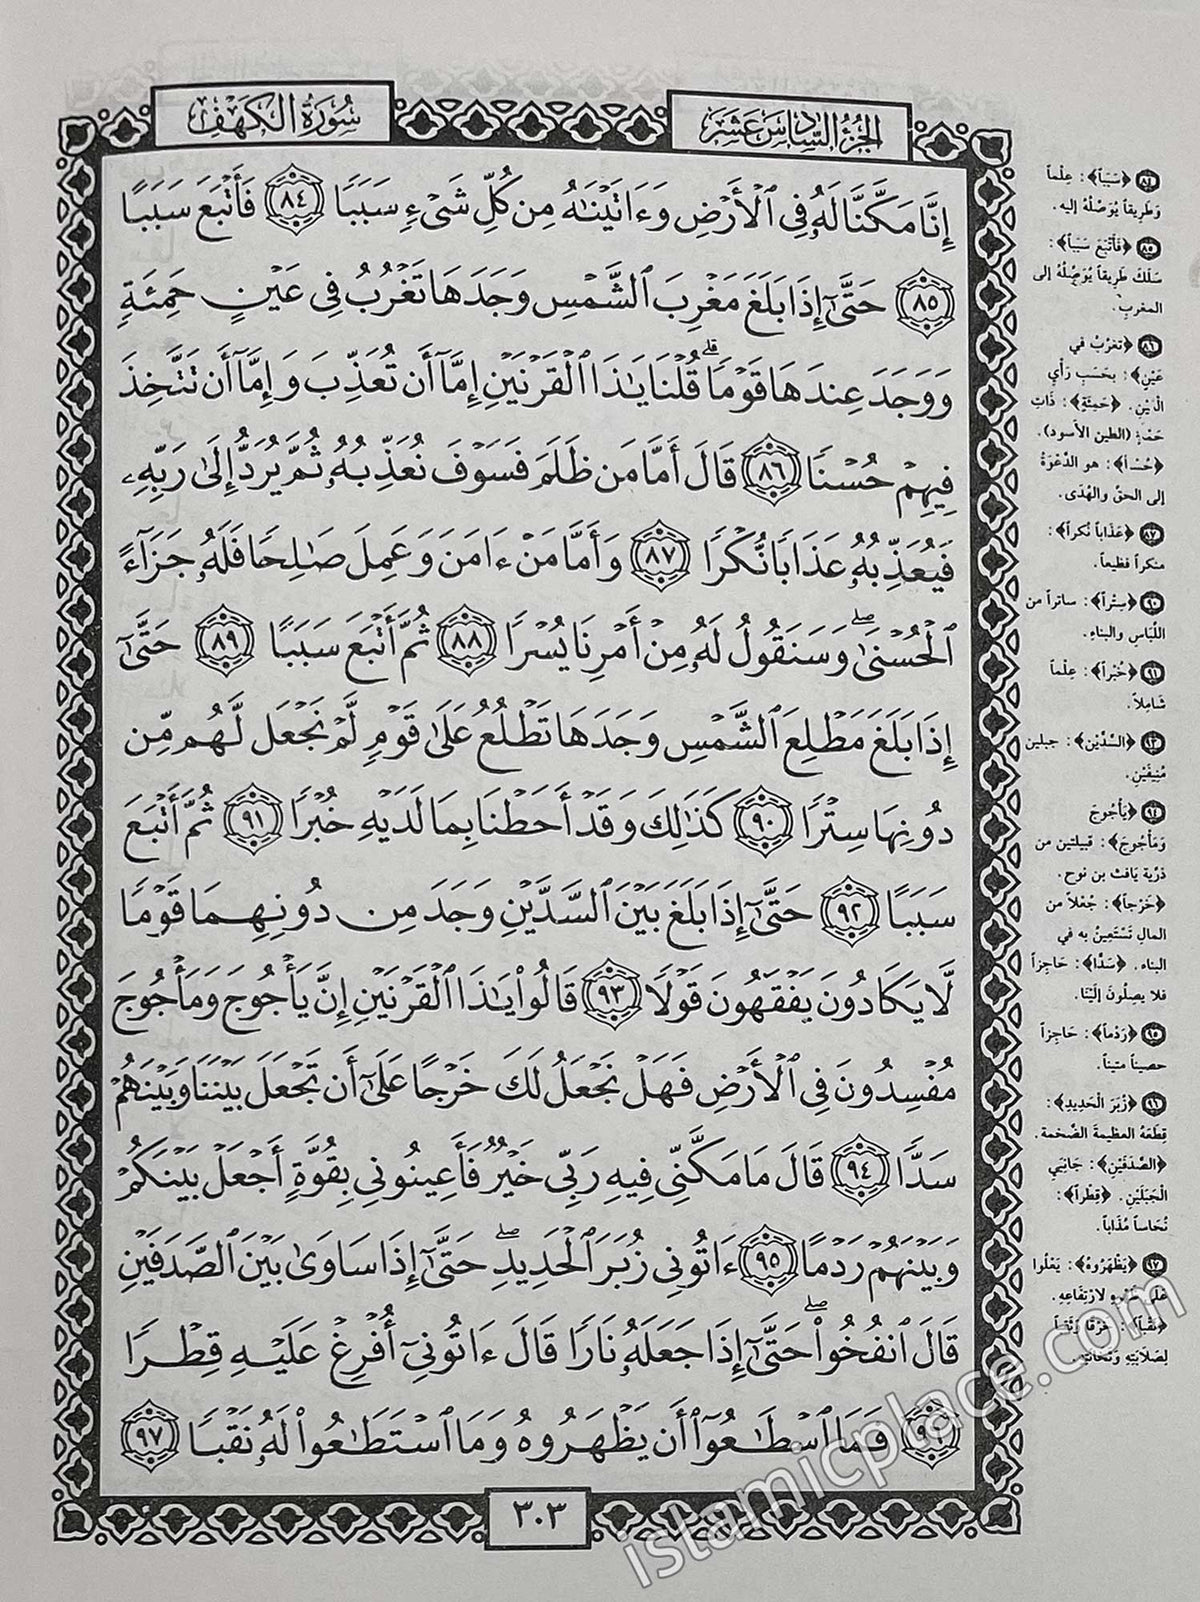 سُورَةُ الكَهْفِ
الجُزْءُ السَّادِسَ عَشَرَ
إِنَّا مَكَّنَّا لَهُۥ فِى ٱلْأَرْضِ وَءَاتَيْنَٰهُ مِن كُلِّ شَىْءٍ سَبَبًا ٨٤ فَأَتْبَعَ سَبَبًا
٨٥ حَتَّىٰٓ إِذَا بَلَغَ مَغْرِبَ ٱلشَّمْسِ وَجَدَهَا تَغْرُبُ فِى عَيْنٍ حَمِئَةٍ
وَوَجَدَ عِندَهَا قَوْمًا ۗ قُلْنَا يَٰذَا ٱلْقَرْنَيْنِ إِمَّآ أَن تُعَذِّبَ وَإِمَّآ أَن تَتَّخِذَ
فِيهِمْ حُسْنًا ٨٦ قَالَ أَمَّا مَن ظَلَمَ فَسَوْفَ نُعَذِّبُهُۥ ثُمَّ يُرَدُّ إِلَىٰ رَبِّهِۦ
فَيُعَذِّبُهُۥ عَذَابًا نُّكْرًا ٨٧ وَأَمَّا مَنْ ءَامَنَ وَعَمِلَ صَٰلِحًا فَلَهُۥ جَزَآءً
ٱلْحُسْنَىٰ ۖ وَسَنَقُولُ لَهُۥ مِنْ أَمْرِنَا يُسْرًا ٨٨ ثُمَّ أَتْبَعَ سَبَبًا ٨٩ حَتَّىٰٓ
إِذَا بَلَغَ مَطْلِعَ ٱلشَّمْسِ وَجَدَهَا تَطْلُعُ عَلَىٰ قَوْمٍ لَّمْ نَجْعَل لَّهُم مِّن
دُونِهَا سِتْرًا ٩٠ كَذَٰلِكَ وَقَدْ أَحَطْنَا بِمَا لَدَيْهِ خُبْرًا ٩١ ثُمَّ أَتْبَعَ
سَبَبًا ٩٢ حَتَّىٰٓ إِذَا بَلَغَ بَيْنَ ٱلسَّدَّيْنِ وَجَدَ مِن دُونِهِمَا قَوْمًا
لَّا يَكَادُونَ يَفْقَهُونَ قَوْلًا ٩٣ قَالُوا۟ يَٰذَا ٱلْقَرْنَيْنِ إِنَّ يَأْجُوجَ وَمَأْجُوجَ
مُفْسِدُونَ فِى ٱلْأَرْضِ فَهَلْ نَجْعَلُ لَكَ خَرْجًا عَلَىٰٓ أَن تَجْعَلَ بَيْنَنَا وَبَيْنَهُمْ
سَدًّا ٩٤ قَالَ مَا مَكَّنِّى فِيهِ رَبِّى خَيْرٌ فَأَعِينُونِى بِقُوَّةٍ أَجْعَلْ بَيْنَكُمْ
وَبَيْنَهُمْ رَدْمًا ٩٥ ءَاتُونِى زُبَرَ ٱلْحَدِيدِ ۖ حَتَّىٰٓ إِذَا سَاوَىٰ بَيْنَ ٱلصَّدَفَيْنِ
قَالَ ٱنفُخُوا۟ ۖ حَتَّىٰٓ إِذَا جَعَلَهُۥ نَارًا قَالَ ءَاتُونِىٓ أُفْرِغْ عَلَيْهِ قِطْرًا
٩٦ فَمَا ٱسْطَٰعُوٓا۟ أَن يَظْهَرُوهُ وَمَا ٱسْتَطَٰعُوا۟ لَهُۥ نَقْبًا ٩٧
٣٠٣
٨٤ ﴿سَبَباً﴾: عِلْماً
وَطَرِيقاً يُوَصِّلُهُ إليه.
٨٥ ﴿فَأَتْبَعَ سَبَباً﴾:
سَلَكَ طَرِيقاً يُوَصِّلُهُ إلى
المغرب.
٨٦ ﴿تغرُبُ في
عَيْنٍ﴾: بحَسَبِ رَأْي
العَيْنِ. ﴿حَمِئَةٍ﴾: ذَاتِ
حَمْأَةٍ (الطين الأسود).
﴿حُسْناً﴾: هو الدَّعْوَةُ
إلى الحقِّ والهُدَى.
٨٧ ﴿عَذَاباً نُكراً﴾:
منكراً فظيعاً.
٩٠ ﴿سِتْراً﴾: ساتراً من
اللِّبَاسِ والبناءِ.
٩١ ﴿خُبْراً﴾: عِلْماً
شَامِلاً.
٩٣ ﴿السَّدَّيْنِ﴾: جبلين
مُنِيفَيْنِ.
٩٤ ﴿يَأْجُوجَ
وَمَأْجُوجَ﴾: قبيلتين من
ذرِّية يَافث بن نوح.
﴿خَرْجاً﴾: جُعْلاً من
المالِ تَسْتَعِينُ به في
البناء. ﴿سَدًّا﴾: حَاجِزاً
فلا يصِلُونَ إلَيْنَا.
٩٥ ﴿رَدْماً﴾: حَاجِزاً
حصيناً متيناً.
٩٦ ﴿زُبَرَ الْحَدِيدِ﴾:
قِطَعَهُ العظيمةَ الضَّخمة.
﴿الصَّدَفَيْنِ﴾: جَانِبَيِ
الْجَبَلَيْنِ. ﴿قِطْراً﴾:
نُحَاساً مُذَاباً.
٩٧ ﴿يَظْهَرُوهُ﴾: يَعْلُوا
عَلَى ظَهْرِهِ لارْتِفَاعِهِ.
﴿نَقْباً﴾: خَرْقاً وثَقْباً
لِصَلَابَتِهِ وَثَخَانَتِهِ.
islamicplace.com